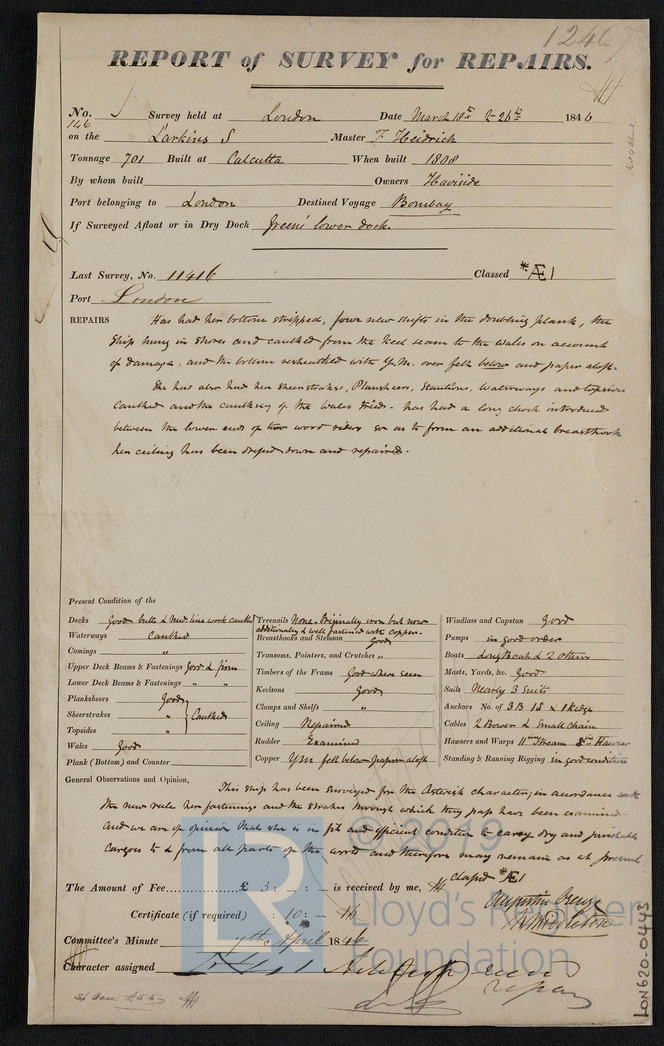 12467
REPORT of SURVEY for REPAIRS.
No. 146 Survey held at London Date March 18th & 26th 1846
on the Larkins S Master F Heidrich
Tonnage 701 Built at Calcutta When built 1808
By whom built Owners Haviside
Port belonging to London Destined Voyage Bombay
If Surveyed Afloat or in Dry Dock Greens lower dock.
Last Survey, No. 11416 Classed *Æ1
Port London
REPAIRS Has had her bottom stripped, four new shifts in the doubling plank, the
Ship hung in Shores and caulked from the Keel seam to the Wales on account
of damage, and the bottom resheathed with Y.M. over felt below and paper aloft.
She has also had her sheerstrakes, Plansheers, Stantions, Waterways and topsides
Caulked and the caulking of the Wales tried. has had a long chock introduced
between the lower ends of two wood riders so as to form an additional breasthook
her ceiling has been dressed down and repaired.
Present Condition of the
Decks Good butts & mid. line work caulked
Waterways Caulked
Comings "
Upper Deck Beams & Fastenings Good & firm
Lower Deck Beams & Fastenings " "
Planksheers Good
Sheerstrakes " Caulked
Topsides "
Wales Good
Plank (Bottom) and Counter
Treenails None. Originally iron but now
additionally & well fastened with copper.
Breasthooks and Stemson Good
Transoms, Pointers, and Crutches "
Timbers of the Frame Good where seen
Keelsons Good
Clamps and Shelfs "
Ceiling Repaired
Rudder Examined
Copper YM felt below paper aloft
Windlass and Capstan Good
Pumps in good order
Boats Long Boat & 2 others
Masts, Yards, &c. Good
Sails Nearly 3 Suits
Anchors No. of 3 B 1 S & 1 Kedge
Cables 2 Bower & Small chain
Hawsers and Warps 11in Stream 8in Hawser
Standing & Running Rigging in good condition
General Observations and Opinion, This ship has been surveyed for the Asterisk character, in accordance with
the new rule her fastenings and the strakes through which they pass have been examined
and we are of opinion that she is in fit and efficient condition to carry dry and perishable
Cargoes to & from all parts of the world and therefore may remain as at present
classed *Æ1
The Amount of Fee £ 3 : - : - is received by me,
Certificate (if required) : 10 : -
Committee's Minute 7th April 1846
Character assigned
LON620-0443
© 2019
Lloyd's Register
Foundation